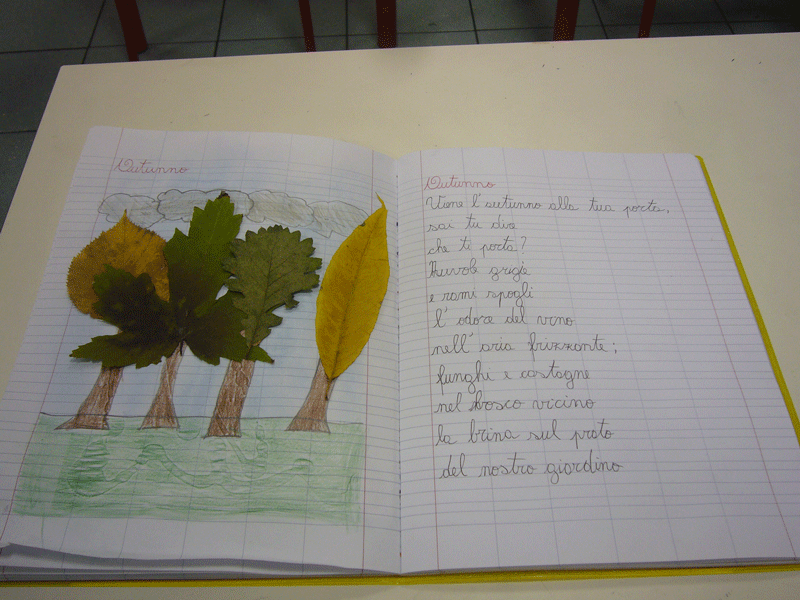 Autunno
Autunno
Viene l'autunno alla tua porta,
sai tu dire
che ti porta?
Nuvole grigie
e rami spogli
l'odore del vino
nell'aria frizzante;
funghi e castagne
nel bosco vicino
la brina sul prato
del nostro giardino